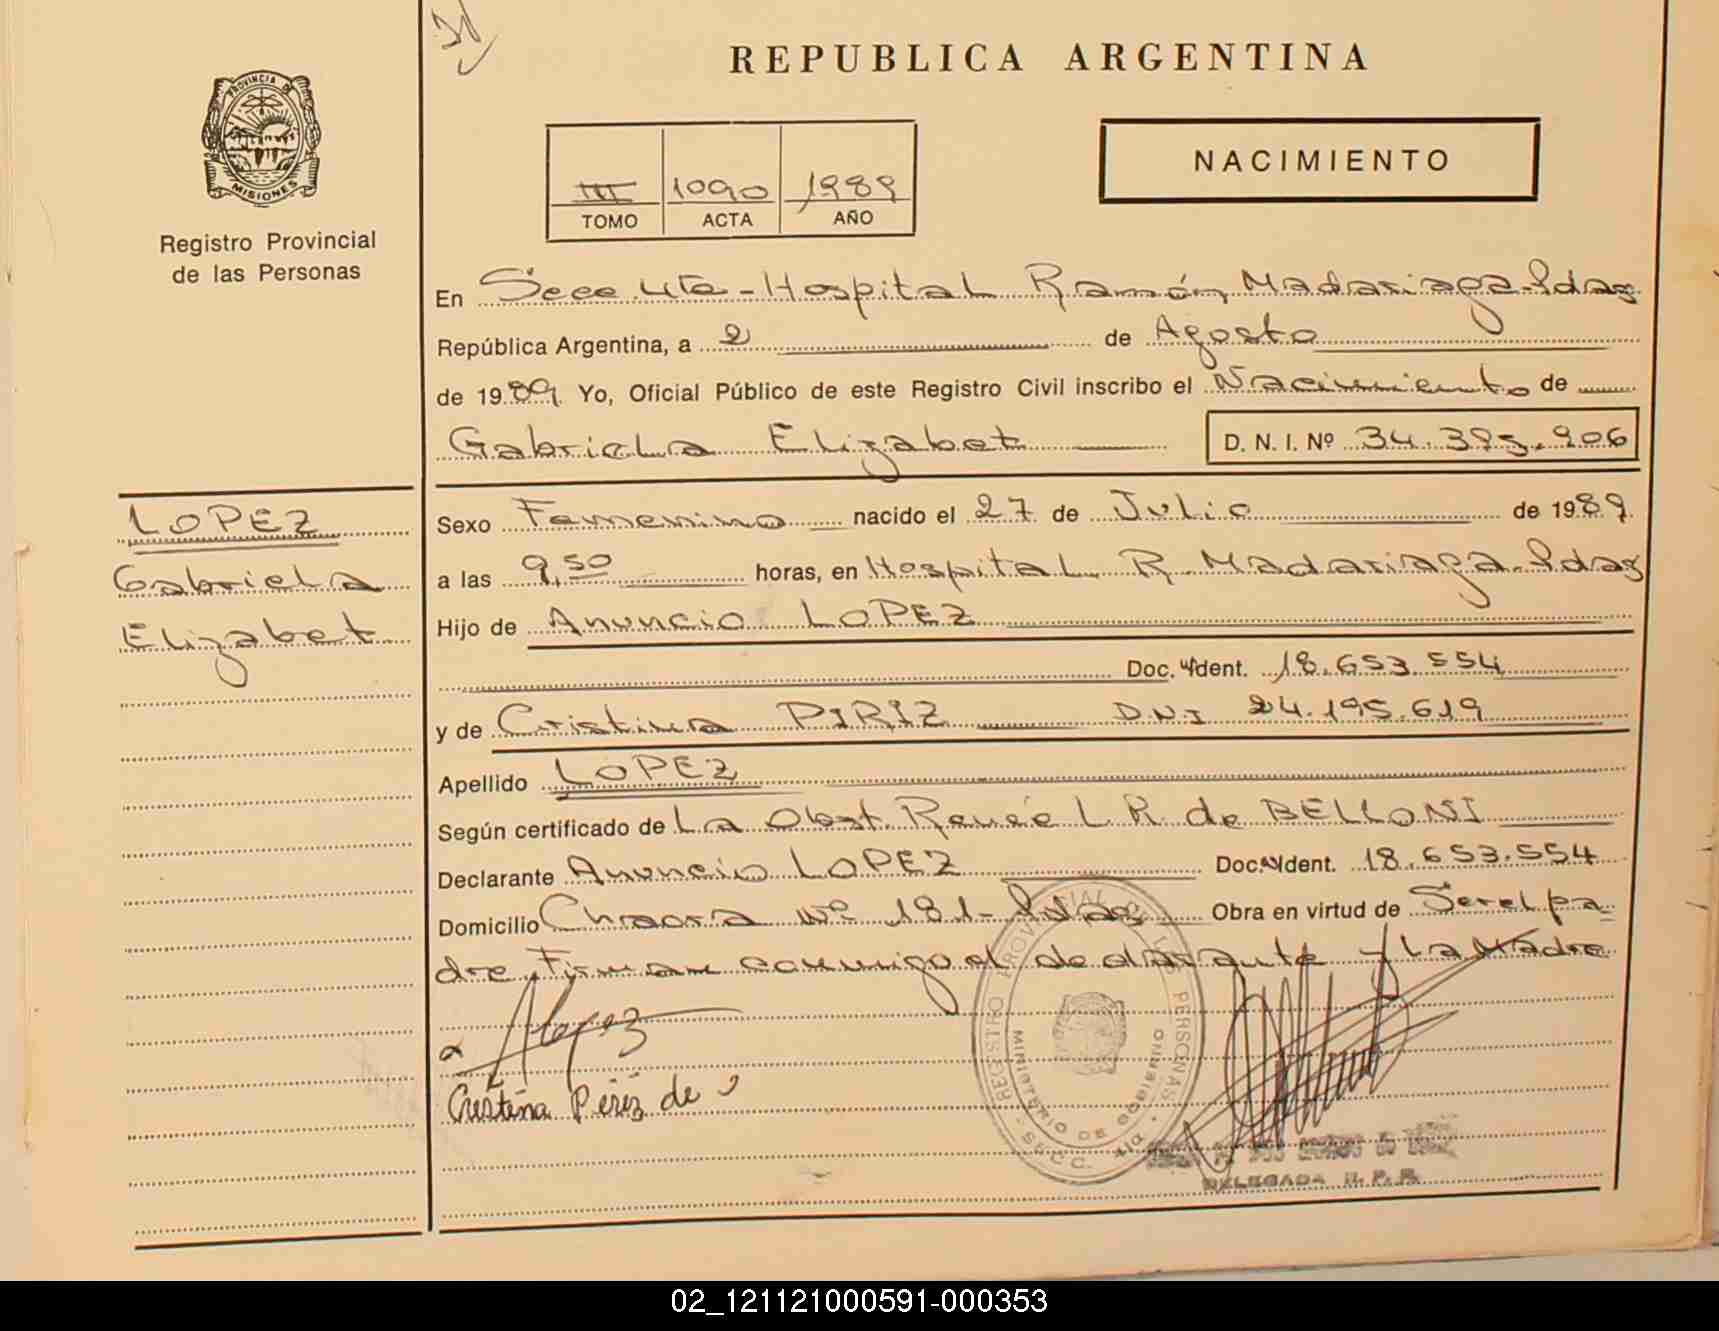 REPUBLICA ARGENTINA
PROVINCIA DE
MISIONES
Registro Provincial
de las Personas
III 1090 1989
TOMO ACTA AÑO
NACIMIENTO
En Secc. 4ta - Hospital Ramón Madariaga - Pdas
República Argentina, a 2 de Agosto
de 1989. Yo, Oficial Público de este Registro Civil inscribo el Nacimiento de
Gabriela Elizabet D. N. I. Nº 34.395.906
LOPEZ
Gabriela
Elizabet
Sexo Femenino nacido el 27 de Julio de 1989.
a las 9,50 horas, en Hospital R. Madariaga - Pdas
Hijo de Anuncio LOPEZ
Doc. Ident. 18.653.554
y de Cristina PIRIZ DNI 24.195.619
Apellido LOPEZ
Según certificado de La Obst. Reneé L. R. de BELLONI
Declarante Anuncio LOPEZ Doc. Ident. 18.653.554
Domicilio Chacra Nº 181 - Pdas Obra en virtud de Ser el pa-
dre. Firman conmigo el declarante y la Madre
REGISTRO PROVINCIAL DE LAS PERSONAS
MINISTERIO DE GOBIERNO
A Lopez
Cristina Piriz de
DELEGADA R. P. P.
02_121121000591-000353